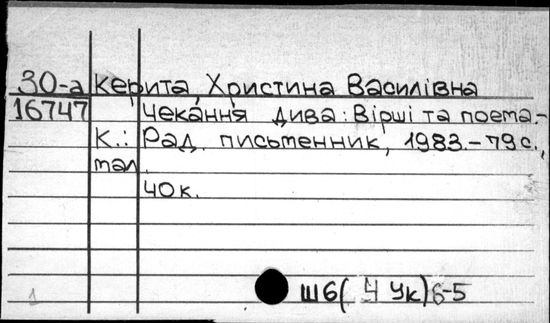 30-а Керита, Христина Василівна
16747 Чекання дива: Вірші та поема.-
К.: Рад. письменник, 1983.- 79 с.,
40 к.
Ш6(4Ук)6-5
1